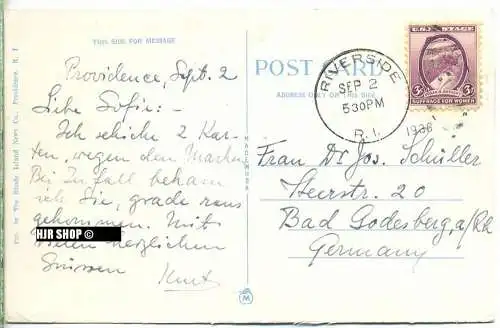 THIS SIDE FOR MESSAGE
Providence, Sept. 2
Liebe Sofie: -
Ich schicke 2 Kar-
ten, wegen den Marken
Bei
Sie, grade
gekommen. Mit
vielen herzlichen
Grüssen
Kurt
HJR SHOP ©
Pub. by The Rhode Island News Co., Providence, R. I.
MADE IN U.S.A.
M
POST CARD
ADDRESS ONLY ON THIS SIDE
RIVERSIDE
SEP 2
5 30 PM
R.I.
1936
U.S. POSTAGE
3¢ 3¢
SUSAN B. ANTHONY
SUFFRAGE FOR WOMEN
Frau Dr Jos. Schüller
Steerstr. 20
Bad Godesberg, a/Rh
Germany